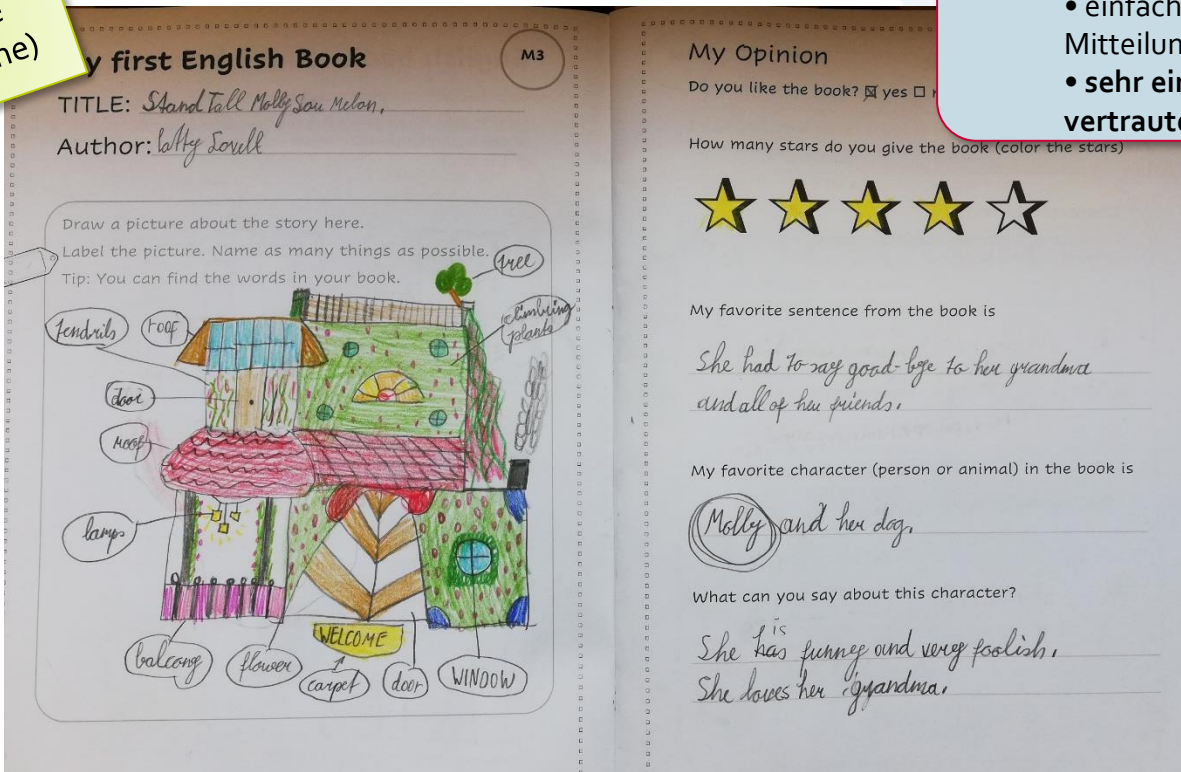 he)
y first English Book
M3
TITLE: Stand Tall Molly Lou Melon.
Author: Patty Lovell
Draw a picture about the story here.
Label the picture. Name as many things as possible.
Tip: You can find the words in your book.
tree
climbing
plants
tendrils
roof
door
roof
lamps
WELCOME
balcony
flower
carpet
door
WINDOW
My Opinion
Do you like the book? ☒ yes ☐
How many stars do you give the book (color the stars)
My favorite sentence from the book is
She had to say good-bye to her grandma
and all of her friends.
My favorite character (person or animal) in the book is
Molly and her dog.
What can you say about this character?
is
She has funny and very foolish.
She loves her grandma.
• einfach
Mitteilun
• sehr ein
vertraute